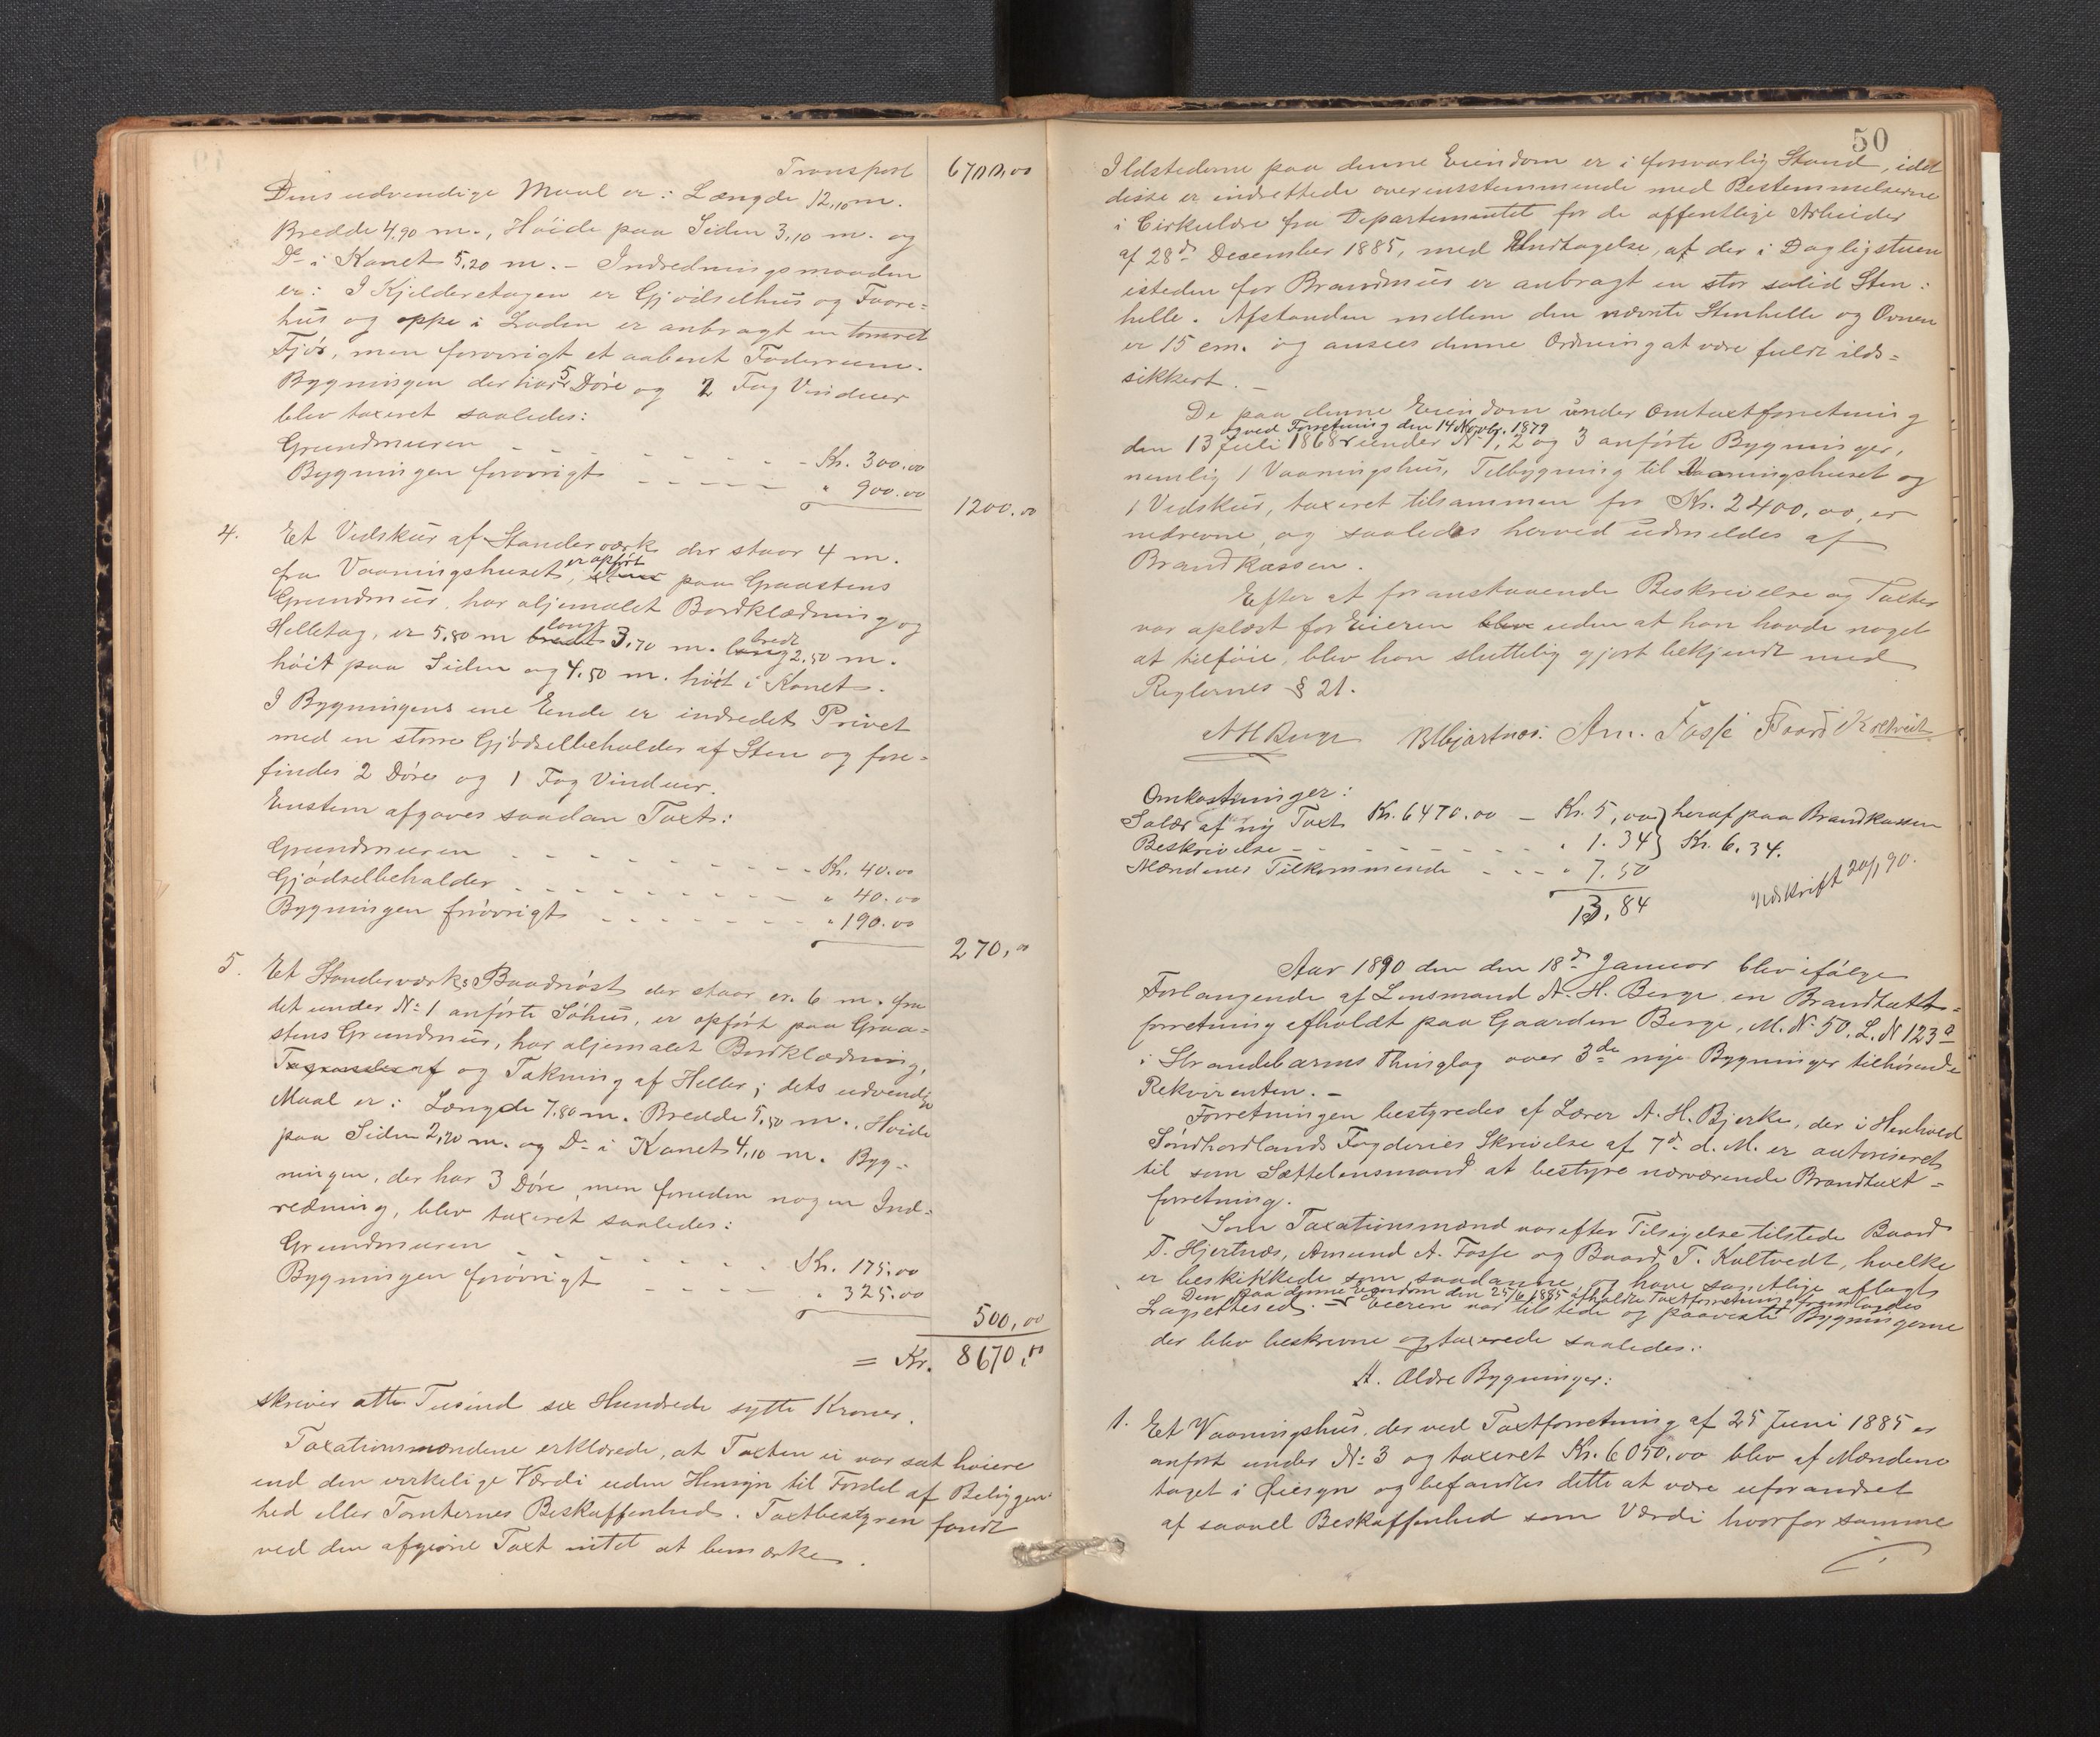 Transport 6700,00
Dens udvendige Maal er: Længde 12,10 m.
Bredde 4,90 m., Höide paa Siden 3,10 m. og
Do i Kanet 5,20 m. – Indredningsmaaden
er: I Kjelderetagen er Gjödselhus og Faare-
hus og oppe i Laden er anbragt en tømret
Fjös, men forövrigt et aabent Foderrum.
Bygningen der har 5 Döre og 2 Fag Vinduer
blev taxeret saaledes:
Grundmuren - - - - - Kr. 300.00
Bygningen forövrigt - - - - - " 900.00
1200.00
4. Et Vedskur af Standerværk der staar 4 m.
fra Vaaningshuset, er opfört paa Graastens
Grundmur, har oljemalet Bordklædning og
Helletag, er 5,80 m langt 3,70 m. bredt 2,50 m.
höit paa Siden og 4.50 m. höit i Kanet.
I Bygningens ene Ende er indredet Privet
med en större Gjödselbeholder af Sten og fore-
findes 2 Döre og 1 Fag Vinduer.
Enstem afgaves saadan Taxt:
Grundmuren - - - - - Kr. 40.00
Gjödselbeholder - - - - - " 40.00
Bygningen forövrigt - - - - - " 190.00
270,00
5. Et Standerværks Baadnöst der staar er. 6 m. fra
det under No 1 anförte Söhus, er opfört paa Graa-
stens Grundmur, har oljemalet Bordklædning,
og Takning af Heller; dets udvendige
Maal er: Længde 7,80 m. Bredde 5,50 m., Höide
paa Siden 2,20 m. og Do i Kanet 4,10 m. Byg-
ningen, der har 3 Döre, men foruden nogen Ind-
redning, blev taxeret saaledes:
Grundmuren - - - - - Kr. 175.00
Bygningen forövrigt - - - - - " 325.00
500,00
= Kr. 8670,00
skriver otte Tusind sex Hundrede sytti Kroner.
Taxationsmændene erklærede, at Taxten ei var sat höiere
end den virkelige Værdi uden Hensyn til Fordel af Beliggen-
hed eller Tomternes Beskaffenhed. Taxtbestyren fandt
ved den afgivne Taxt intet at bemærke.
50
Ildstederne paa denne Eiendom er i forsvarlig Stand, idet
disse er indrettede overensstemmende med Bestemmelserne
i Cirkulære fra Departementet for de offentlige Arbeider
af 28de December 1885, med Undtagelse, af der i Dagligstuen
isteden for Brandmur er anbragt en stor solid Sten-
helle. Afstanden mellem den nævnte Stenhelle og Ovnen
er 15 cm. og ansees denne Ordning at være fuldt ilds-
sikkert. –
De paa denne Eiendom under Omtaxtforretning
den 13 Juli 1868 og ved Forretning den 14 Novbr. 1879 under No 1, 2 og 3 anförte Bygninger,
nemlig 1 Vaaningshus, Tilbygning til Vaaningshuset og
1 Vedskur, taxeret tilsammen for Kr. 2400,00, er
nedrevne, og saaledes herved udmeldes af
Brandkassen.
Efter at foranstaaende Beskrivelse og Taxter
var oplæst for Eieren blev uden at han havde noget
at tilföie, blev han sluttelig gjort bekjendt med
Reglernes § 21.
N H Berge B Hjartnes. Am. Fosse Baard Koltveit
Omkostninger:
Salær af ny Taxt Kr. 6470.00 – Kr. 5,00 } heraf paa Brandkassen
Beskrivelse - - - - - " 1.34 } Kr. 6.34.
Mændenes Tilkommende - - - " 7.50
13,84
Udskrift 20/1 90.
Aar 1890 den den 18de Januar blev ifölge
Forlangende af Lensmand N. H. Berge en Brandtaxt-
forretning afholdt paa Gaarden Berge, M. No 50, L. N 123a
i Strandebarms Thinglag over 3de nye Bygninger tilhörende
Rekvirenten. –
Forretningen bestyredes af Lærer N. H. Bjerke, der i Henhold
Söndhordlands Fogderies Skrivelse af 7de d. M. er autoriseret
til som Sættelensmand at bestyre nærværende Brandtaxt-
forretning.
Som Taxationsmænd var efter Tilsigelse tilstede Baard
T. Hjertnæs, Amund A. Fosse og Baard T. Koltvedt, hvilke
er beskikkede som saadanne og have samtlige aflagt
Lagrettesed. – Den paa denne Eiendom den 25/6 1885 afholdte Taxtforretning fremlagdes
Eieren var tilstede og paaviste Bygningerne
der blev beskrevne og taxerede saaledes:
A. Ældre Bygninger:
1. Et Vaaningshus, der ved Taxtforretning af 25 Juni 1885 er
anfört under No 3 og taxeret Kr. 6050,00 blev af Mændene
taget i Öiesyn og befandtes dette at være uforandret
af saavel Beskaffenhed som Værdi hvorfor samme